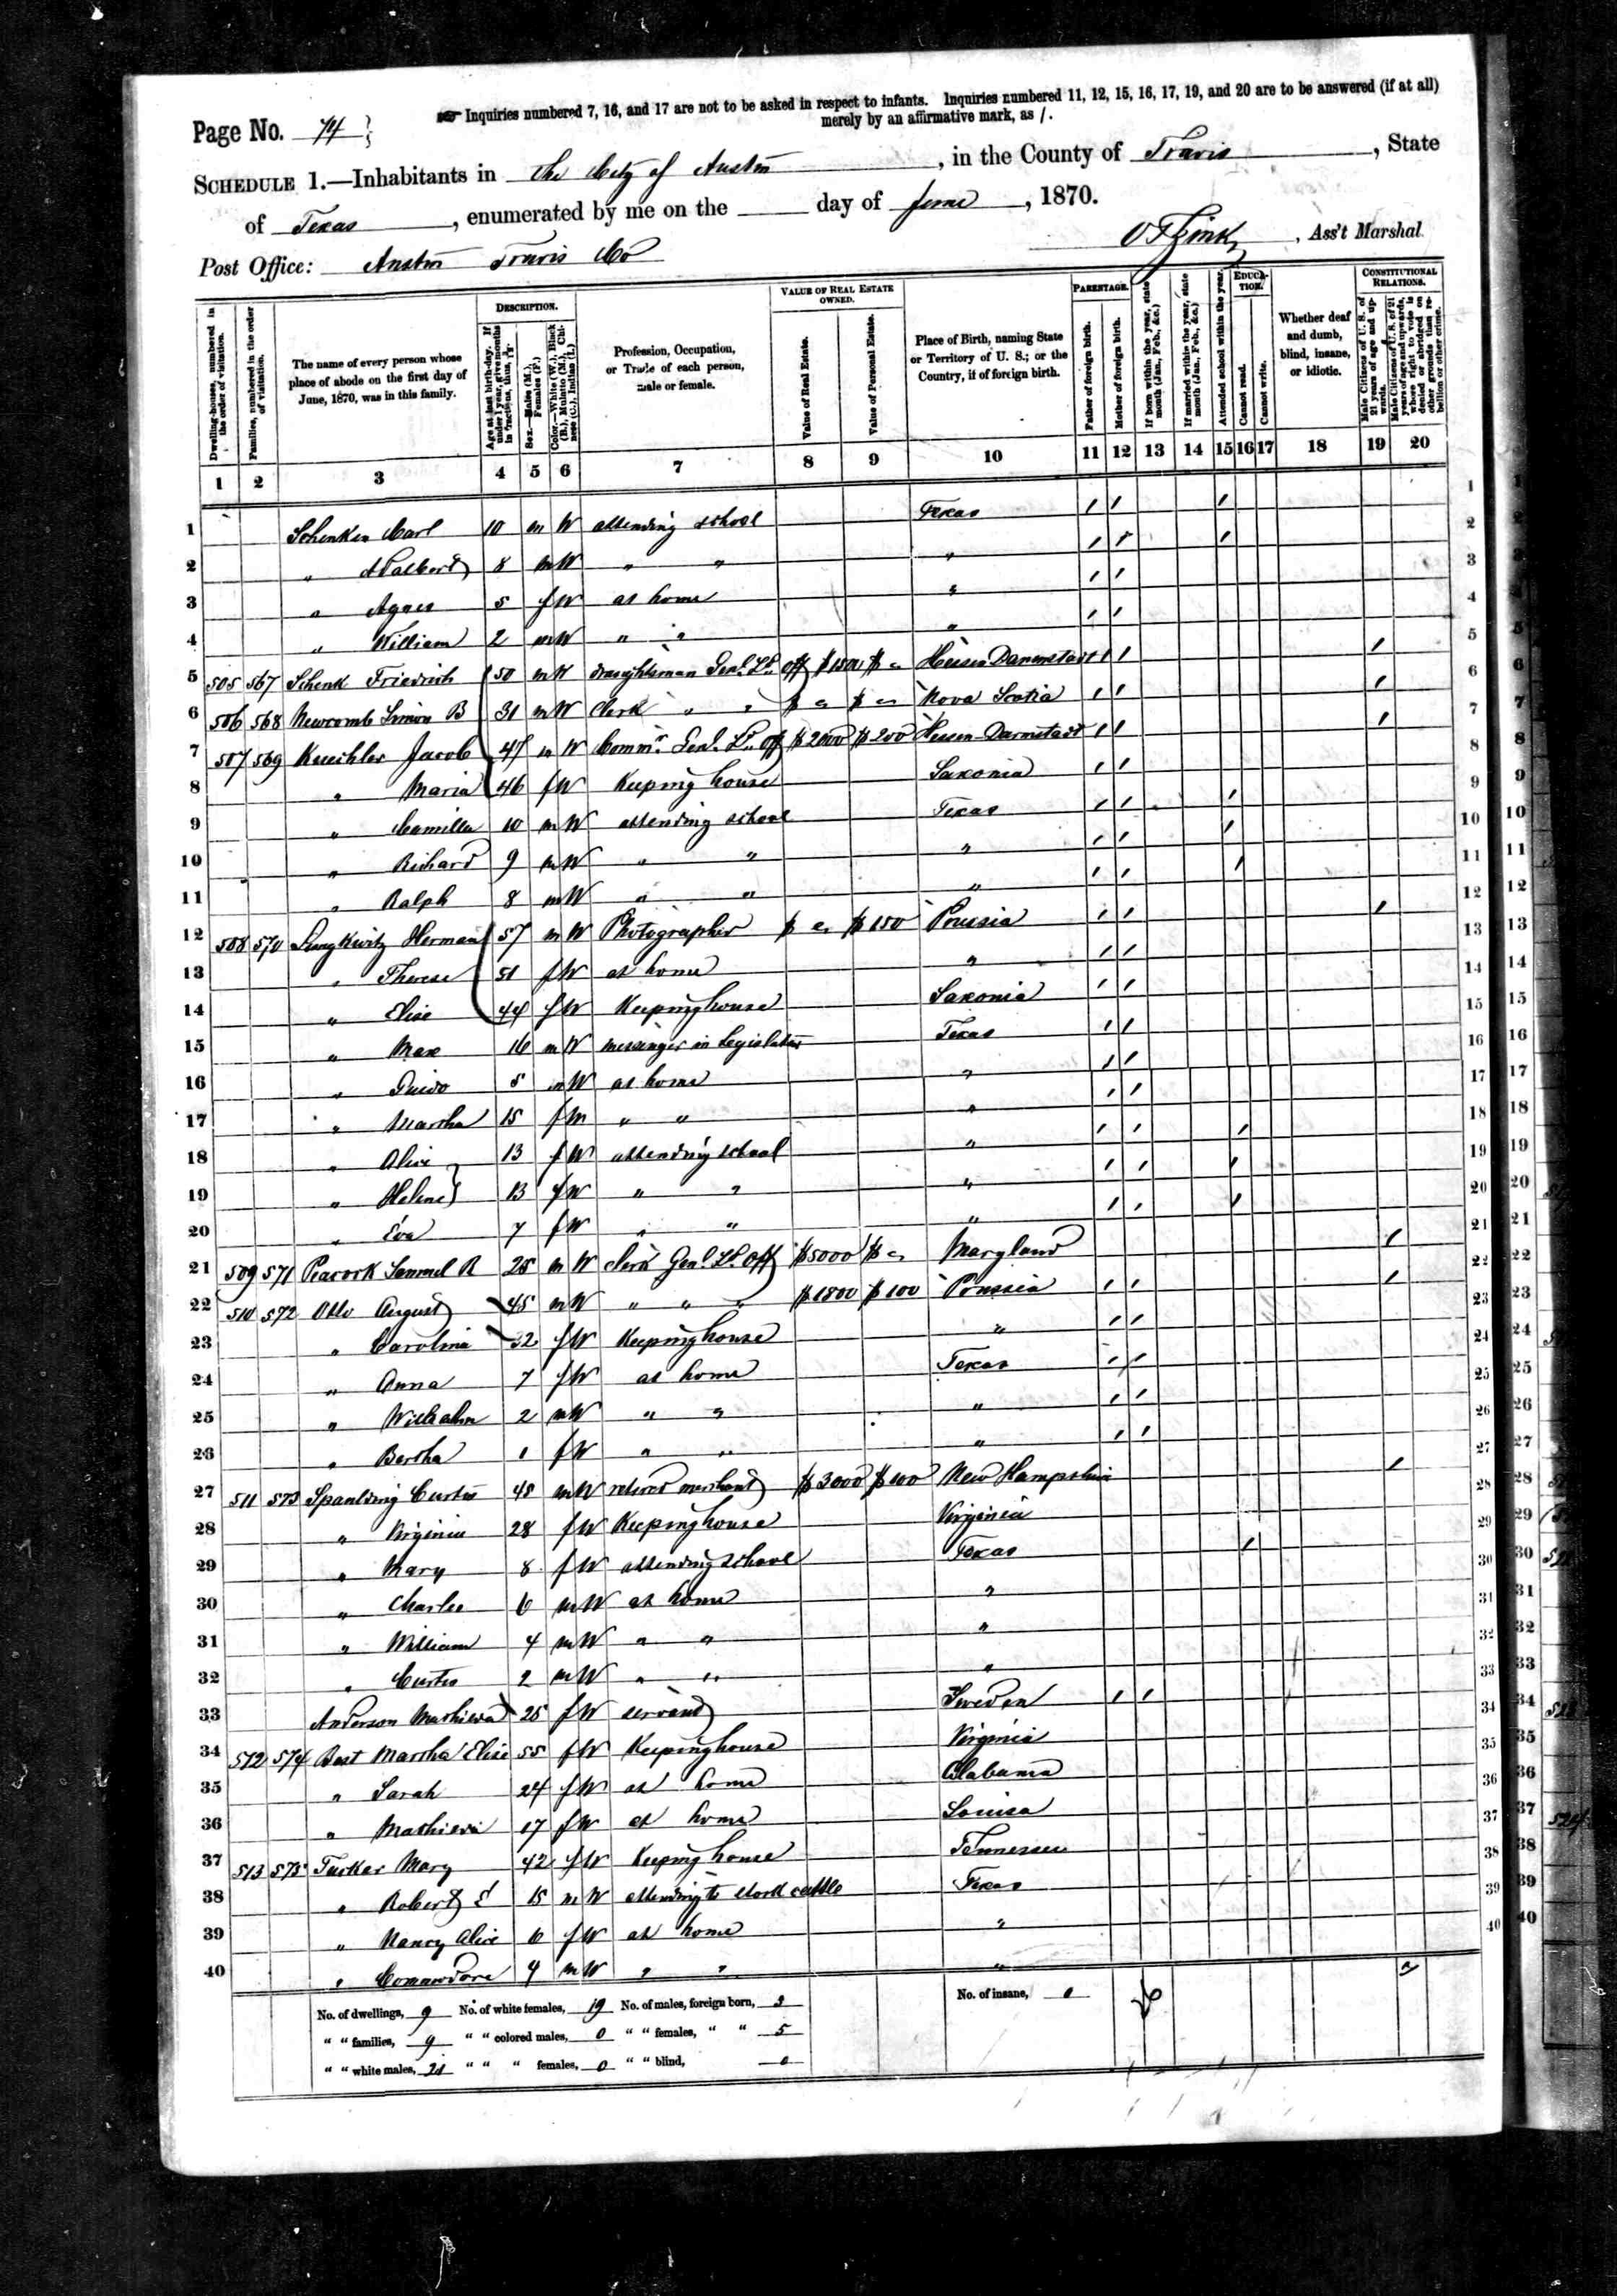 Inquiries numbered 7, 16, and 17 are not to be asked in respect to infants. Inquiries numbered 11, 12, 15, 16, 17, 19, and 20 are to be answered (if at all)
merely by an affirmative mark, as /.
Page No. 74
SCHEDULE 1.—Inhabitants in the City of Austin, in the County of Travis, State
of Texas, enumerated by me on the day of June, 1870.
Post Office: Austin Travis Co
Ass't Marshal
DESCRIPTION.
VALUE OF REAL ESTATE OWNED.
PARENTAGE.
EDUCATION.
CONSTITUTIONAL RELATIONS.
Dwelling-houses, numbered in the order of visitation.
Families, numbered in the order of visitation.
The name of every person whose place of abode on the first day of June, 1870, was in this family.
Age at last birth-day. If under 1 year, give months in fractions, thus,
Sex.—Males (M.), Females (F.)
Color.—White (W.), Black (B.), Mulatto (M.), Chinese (C.), Indian (I.)
Profession, Occupation, or Trade of each person, male or female.
Value of Real Estate.
Value of Personal Estate.
Place of Birth, naming State or Territory of U. S.; or the Country, if of foreign birth.
Father of foreign birth.
Mother of foreign birth.
If born within the year, state month (Jan., Feb., &c.)
If married within the year, state month (Jan., Feb., &c.)
Attended school within the year.
Cannot read.
Cannot write.
Whether deaf and dumb, blind, insane, or idiotic.
Male Citizens of U. S. of 21 years of age and upwards.
Male Citizens of U. S. of 21 years of age and upwards, whose right to vote is denied or abridged on other grounds than rebellion or other crime.
1 2 3 4 5 6 7 8 9 10 11 12 13 14 15 16 17 18 19 20
1 Schenken Carl 10 m W attending school Texas / / / 1
2 " Adalbert 8 m W " " " / / / 2
3 " Agnes 5 f W at home " / / 3
4 " William 2 m W " " " / / 4
5 505 567 Schenk Friedrich 50 m W draughtsman Genl. Ld. Off $1500 $ " Hessen Darmstadt / / / 5
6 506 568 Newcomb Simon B 31 m W Clerk " " $ " $ " Nova Scotia / / / 6
7 507 569 Kuechler Jacob 47 m W Commr. Genl. Ld. Off $2000 $200 Hessen-Darmstadt / / / 7
8 " Maria 46 f W Keeping house Saxonia / / 8
9 " Camilla 10 m W attending school Texas / / / 9
10 " Richard 9 m W " " " / / / 10
11 " Ralph 8 m W " " " / / / 11
12 508 570 Lungkwitz Herman 57 m W Photographer $ " $150 Prussia / / / 12
13 " Therese 51 f W at home " / / 13
14 " Elise 44 f W Keepinghouse Saxonia / / 14
15 " Max 16 m W messenger in Legislatur Texas / / 15
16 " Guido 5 m W at home " / / 16
17 " Martha 15 f W " " " / / 17
18 " Alice 13 f W attending school " / / / 18
19 " Helene 13 f W " " " / / / 19
20 " Eva 7 f W " " " / / / 20
21 509 571 Peacock Samuel R 25 m W clerk Genl. Ld. Off $5000 $ " Maryland / 21
22 510 572 Otto August 45 m W " " " $1800 $100 Prussia / / / 22
23 " Carolina 32 f W Keepinghouse " / / 23
24 " Anna 7 f W at home Texas / / 24
25 " Wilhelm 2 m W " " " / / 25
26 " Bertha 1 f W " " " / / 26
27 511 573 Spaulding Curtis 48 m W retired merchant $3000 $100 New Hampshire / 27
28 " Virginia 28 f W Keepinghouse Virginia 28
29 " Mary 8 f W attending school Texas / 29
30 " Charles 6 m W at home " 30
31 " William 4 m W " " " 31
32 " Curtis 2 m W " " " 32
33 Anderson 25 f W servant Sweden / / 33
34 512 574 Martha Elise 55 f W Keepinghouse Virginia 34
35 " Sarah 24 f W at home Alabama 35
36 " 17 f W at home Louisa 36
37 513 575 Tucker Mary 42 f W Keeping house Tennessee 37
38 " Robert E 15 m W attending to stock cattle Texas 38
39 " Nancy Alice 6 f W at home " 39
40 " Commodore 4 m W " " " 40
No. of dwellings, 9 No. of white females, 19 No. of males, foreign born, No. of insane, 0
" " families, 9 " " colored males, 0 " " females, " " 5
" " white males, 21 " " " females, 0 " " blind, 0